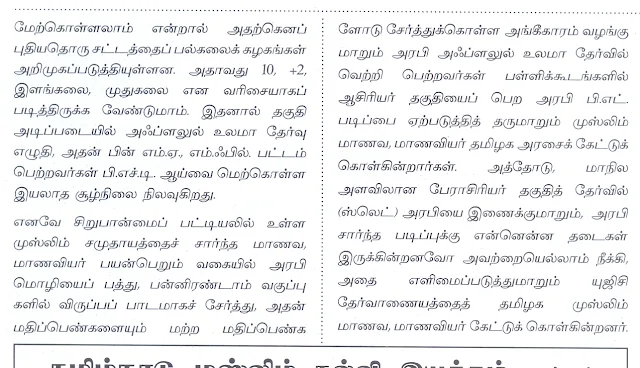 மேற்கொள்ளலாம் என்றால் அதற்கெனப்
புதியதொரு சட்டத்தைப் பல்கலைக் கழகங்கள்
அறிமுகப்படுத்தியுள்ளன. அதாவது 10, +2,
இளங்கலை, முதுகலை என வரிசையாகப்
படித்திருக்க வேண்டுமாம். இதனால் தகுதி
அடிப்படையில் அஃப்ளலுல் உலமா தேர்வு
எழுதி, அதன் பின் எம்.ஏ., எம்.ஃபில். பட்டம்
பெற்றவர்கள் பி.எச்.டி. ஆய்வை மெற்கொள்ள
இயலாத சூழ்நிலை நிலவுகிறது.
எனவே சிறுபான்மைப் பட்டியலில் உள்ள
முஸ்லிம் சமுதாயத்தைச் சார்ந்த மாணவ,
மாணவியர் பயன்பெறும் வகையில் அரபி
மொழியைப் பத்து, பன்னிரண்டாம் வகுப்பு
களில் விருப்பப் பாடமாகச் சேர்த்து, அதன்
மதிப்பெண்களையும் மற்ற மதிப்பெண்க
ளோடு சேர்த்துக்கொள்ள அங்கீகாரம் வழங்கு
மாறும் அரபி அஃப்ளலுல் உலமா தேர்வில்
வெற்றி பெற்றவர்கள் பள்ளிக்கூடங்களில்
ஆசிரியர் தகுதியைப் பெற அரபி பி.எட்.
படிப்பை ஏற்படுத்தித் தருமாறும் முஸ்லிம்
மாணவ, மாணவியர் தமிழக அரசைக் கேட்டுக்
கொள்கின்றார்கள். அத்தோடு, மாநில
அளவிலான பேராசிரியர் தகுதித் தேர்வில்
(ஸ்லெட்) அரபியை இணைக்குமாறும், அரபி
சார்ந்த படிப்புக்கு என்னென்ன தடைகள்
இருக்கின்றனவோ அவற்றையெல்லாம் நீக்கி,
அதை எளிமைப்படுத்துமாறும் யுஜிசி
தேர்வாணையத்தைத் தமிழக முஸ்லிம்
மாணவ, மாணவியர் கேட்டுக் கொள்கின்றனர்.